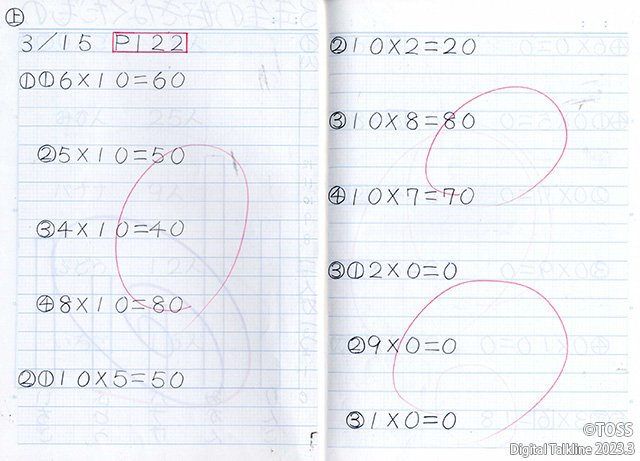 上
3/15 P122
①①6×10=60
②5×10=50
③4×10=40
④8×10=80
②①10×5=50
②10×2=20
③10×8=80
④10×7=70
③①2×0=0
②9×0=0
③1×0=0
©TOSS
Digital Talkline 2023.3